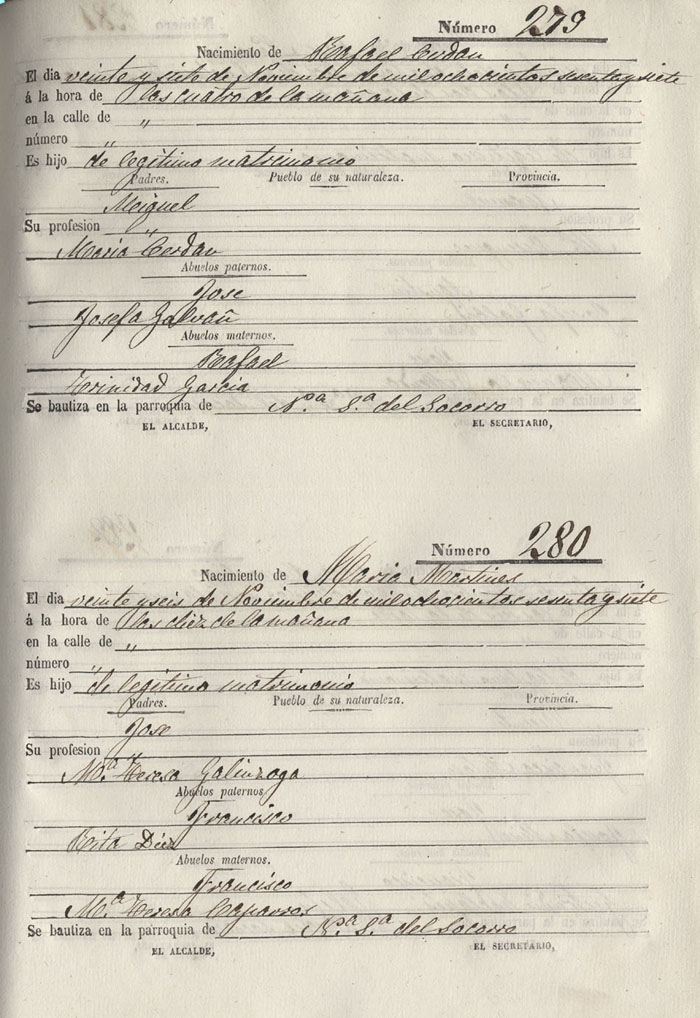 Número 279
Nacimiento de Rafael Cerdan
El dia veinte y siete de Noviembre de mil ochocientos sesenta y siete
á la hora de las cuatro de la mañana
en la calle de "
número "
Es hijo de legitimo matrimonio
Padres. Pueblo de su naturaleza. Provincia.
Miguel
Su profesion "
Maria Cerdan
Abuelos paternos.
Jose
Josefa Galvañ
Abuelos maternos.
Rafael
Trinidad Garcia
Se bautiza en la parroquia de N.ª S.ª del Socorro
EL ALCALDE, EL SECRETARIO,
Número 280
Nacimiento de Maria Martines
El dia veinte y seis de Noviembre de mil ochocientos sesenta y siete
á la hora de las diez de la mañana
en la calle de "
número "
Es hijo de legitimo matrimonio
Padres. Pueblo de su naturaleza. Provincia.
Jose
Su profesion "
M.ª Teresa Galinzoga
Abuelos paternos
Francisco
Rita Diez
Abuelos maternos.
Francisco
M.ª Teresa Caparros
Se bautiza en la parroquia de N.ª S.ª del Socorro
EL ALCALDE, EL SECRETARIO,